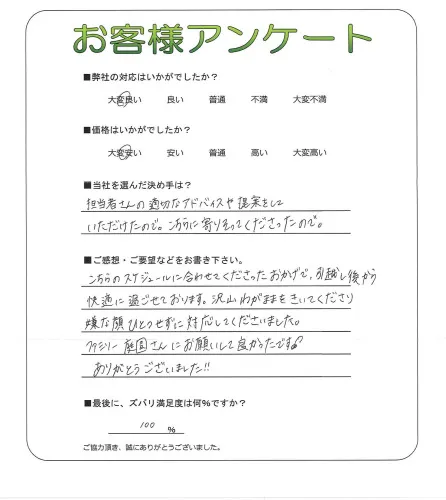 お客様アンケート
■弊社の対応はいかがでしたか?
大変良い 良い 普通 不満 大変不満
■価格はいかがでしたか?
大変安い 安い 普通 高い 大変高い
■当社を選んだ決め手は?
担当者さんの適切なアドバイスや提案をして
いただけたので。こちらに寄りそってくださったので。
■ご感想・ご要望などをお書き下さい。
こちらのスケジュールに合わせてくださったおかげで、引越し後から
快適に過ごせております。沢山わがままをきいてくださり
嫌な顔ひとつせずに対応してくださいました。
ファミリー庭園さんにお願いして良かったです♪
ありがとうございました!!
■最後に、ズバリ満足度は何%ですか?
100 %
ご協力頂き、誠にありがとうございました。